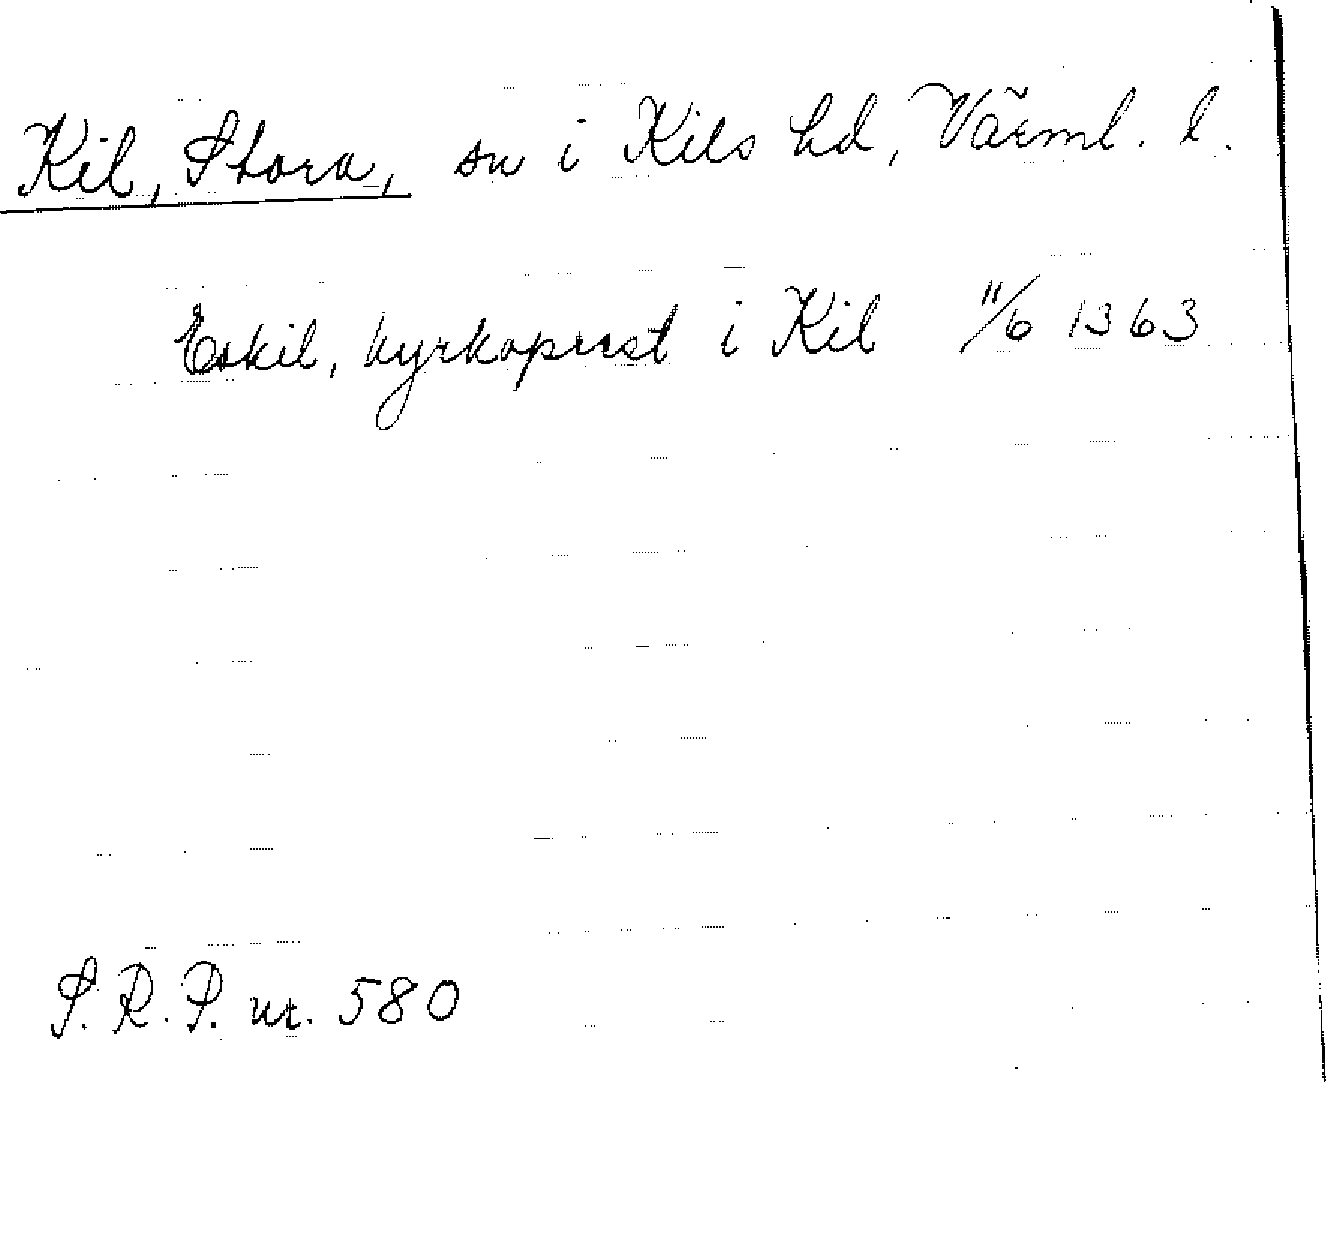 Kil, Stora, sn i Kils hd, Värml. l.
Eskil, kyrkoprest i Kil 11/6 1363
S.R.P. nr. 580